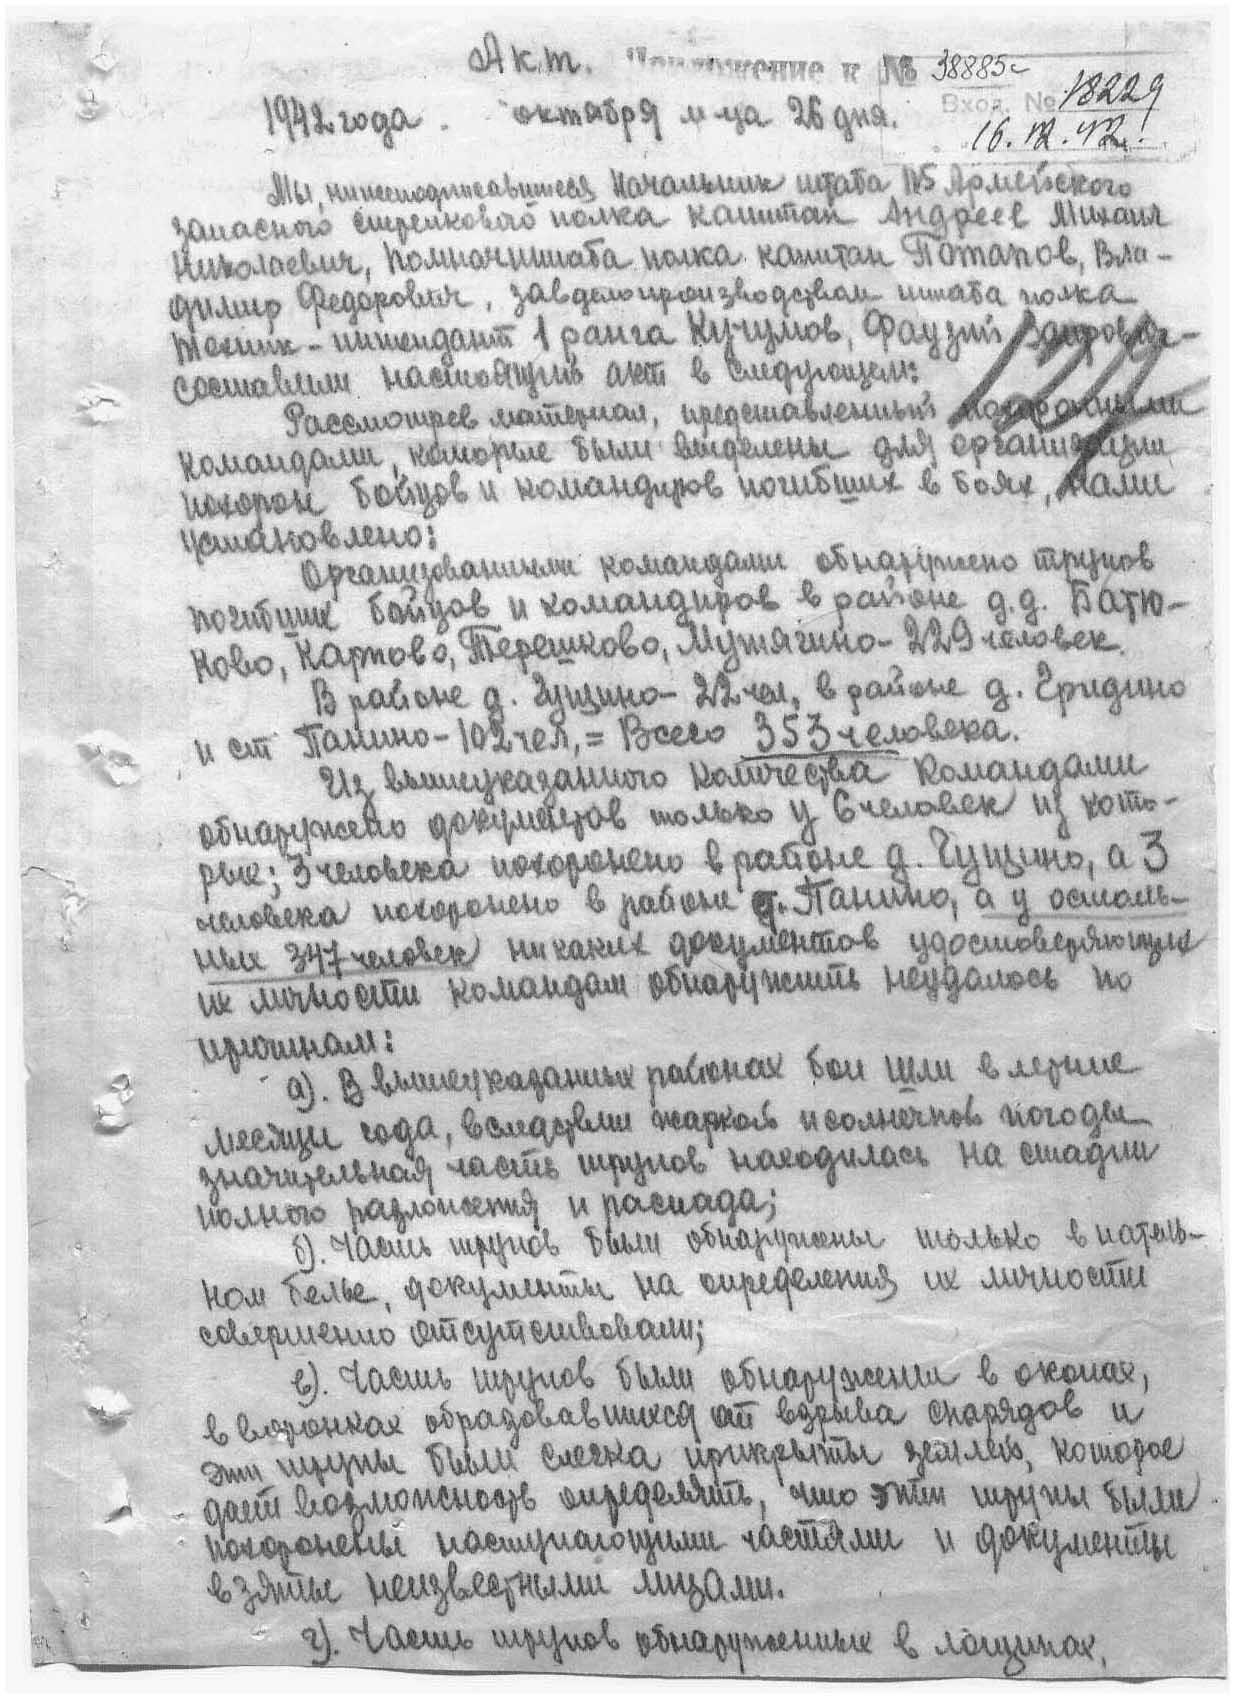 Акт. Приложение к № 38885с
Вход. № 18229
1942 года. октября м-ца 26 дня.
16.12.42.
Мы, нижеподписавшиеся Начальник штаба 115 Армейского
запасного стрелкового полка капитан Андреев Михаил
Николаевич, Помначштаба полка капитан Потапов, Вла-
димир Федорович, завделопроизводством штаба полка
техник-интендант 1 ранга Кучумов, Фаузий
составили настоящий акт в следующем:
Рассмотрев материал, представленный похоронными
командами, которые были выделены для организации
похорон бойцов и командиров погибших в боях, нами
установлено:
Организованными командами обнаружено трупов
погибших бойцов и командиров в районе д.д. Батю-
ково, Карпово, Терешково, Мутягино - 229 человек.
В районе д. Гущино - 22 чел, в районе д. Гридино
и ст Панино - 102 чел, = Всего 353 человека.
Из вышеуказанного количества командами
обнаружено документов только у 6 человек из кото-
рые; 3 человека похоронено в районе д. Гущино, а 3
человека похоронено в районе д. Панино, а у осталь-
ных 347 человек никаких документов удостоверяющих
их личности командам обнаружить неудалось по
причинам:
а). В вышеуказанных районах бои шли в летние
месяцы года, вследствии жаркой и солнечной погоды
значительная часть трупов находилась на стадии
полного разложения и распада;
б). Часть трупов были обнаружены только в натель-
ном белье, документы на определения их личности
совершенно отсутствовали;
в). Часть трупов были обнаружены в окопах,
в воронках образовавшихся от взрыва снарядов и
эти трупы были слегка прикрыты землей, которое
дает возможность определять, что эти трупы были
похоронены наступающими частями и документы
взяты неизвестными лицами.
г). Часть трупов обнаруженных в лощинах,